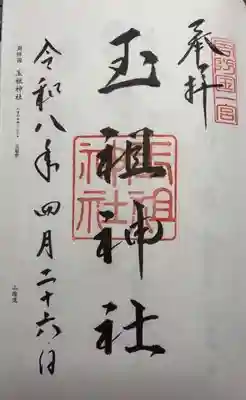 奉拝
玉祖神社
令和八年四月二十六日
周防国 玉祖神社
玉祖神社